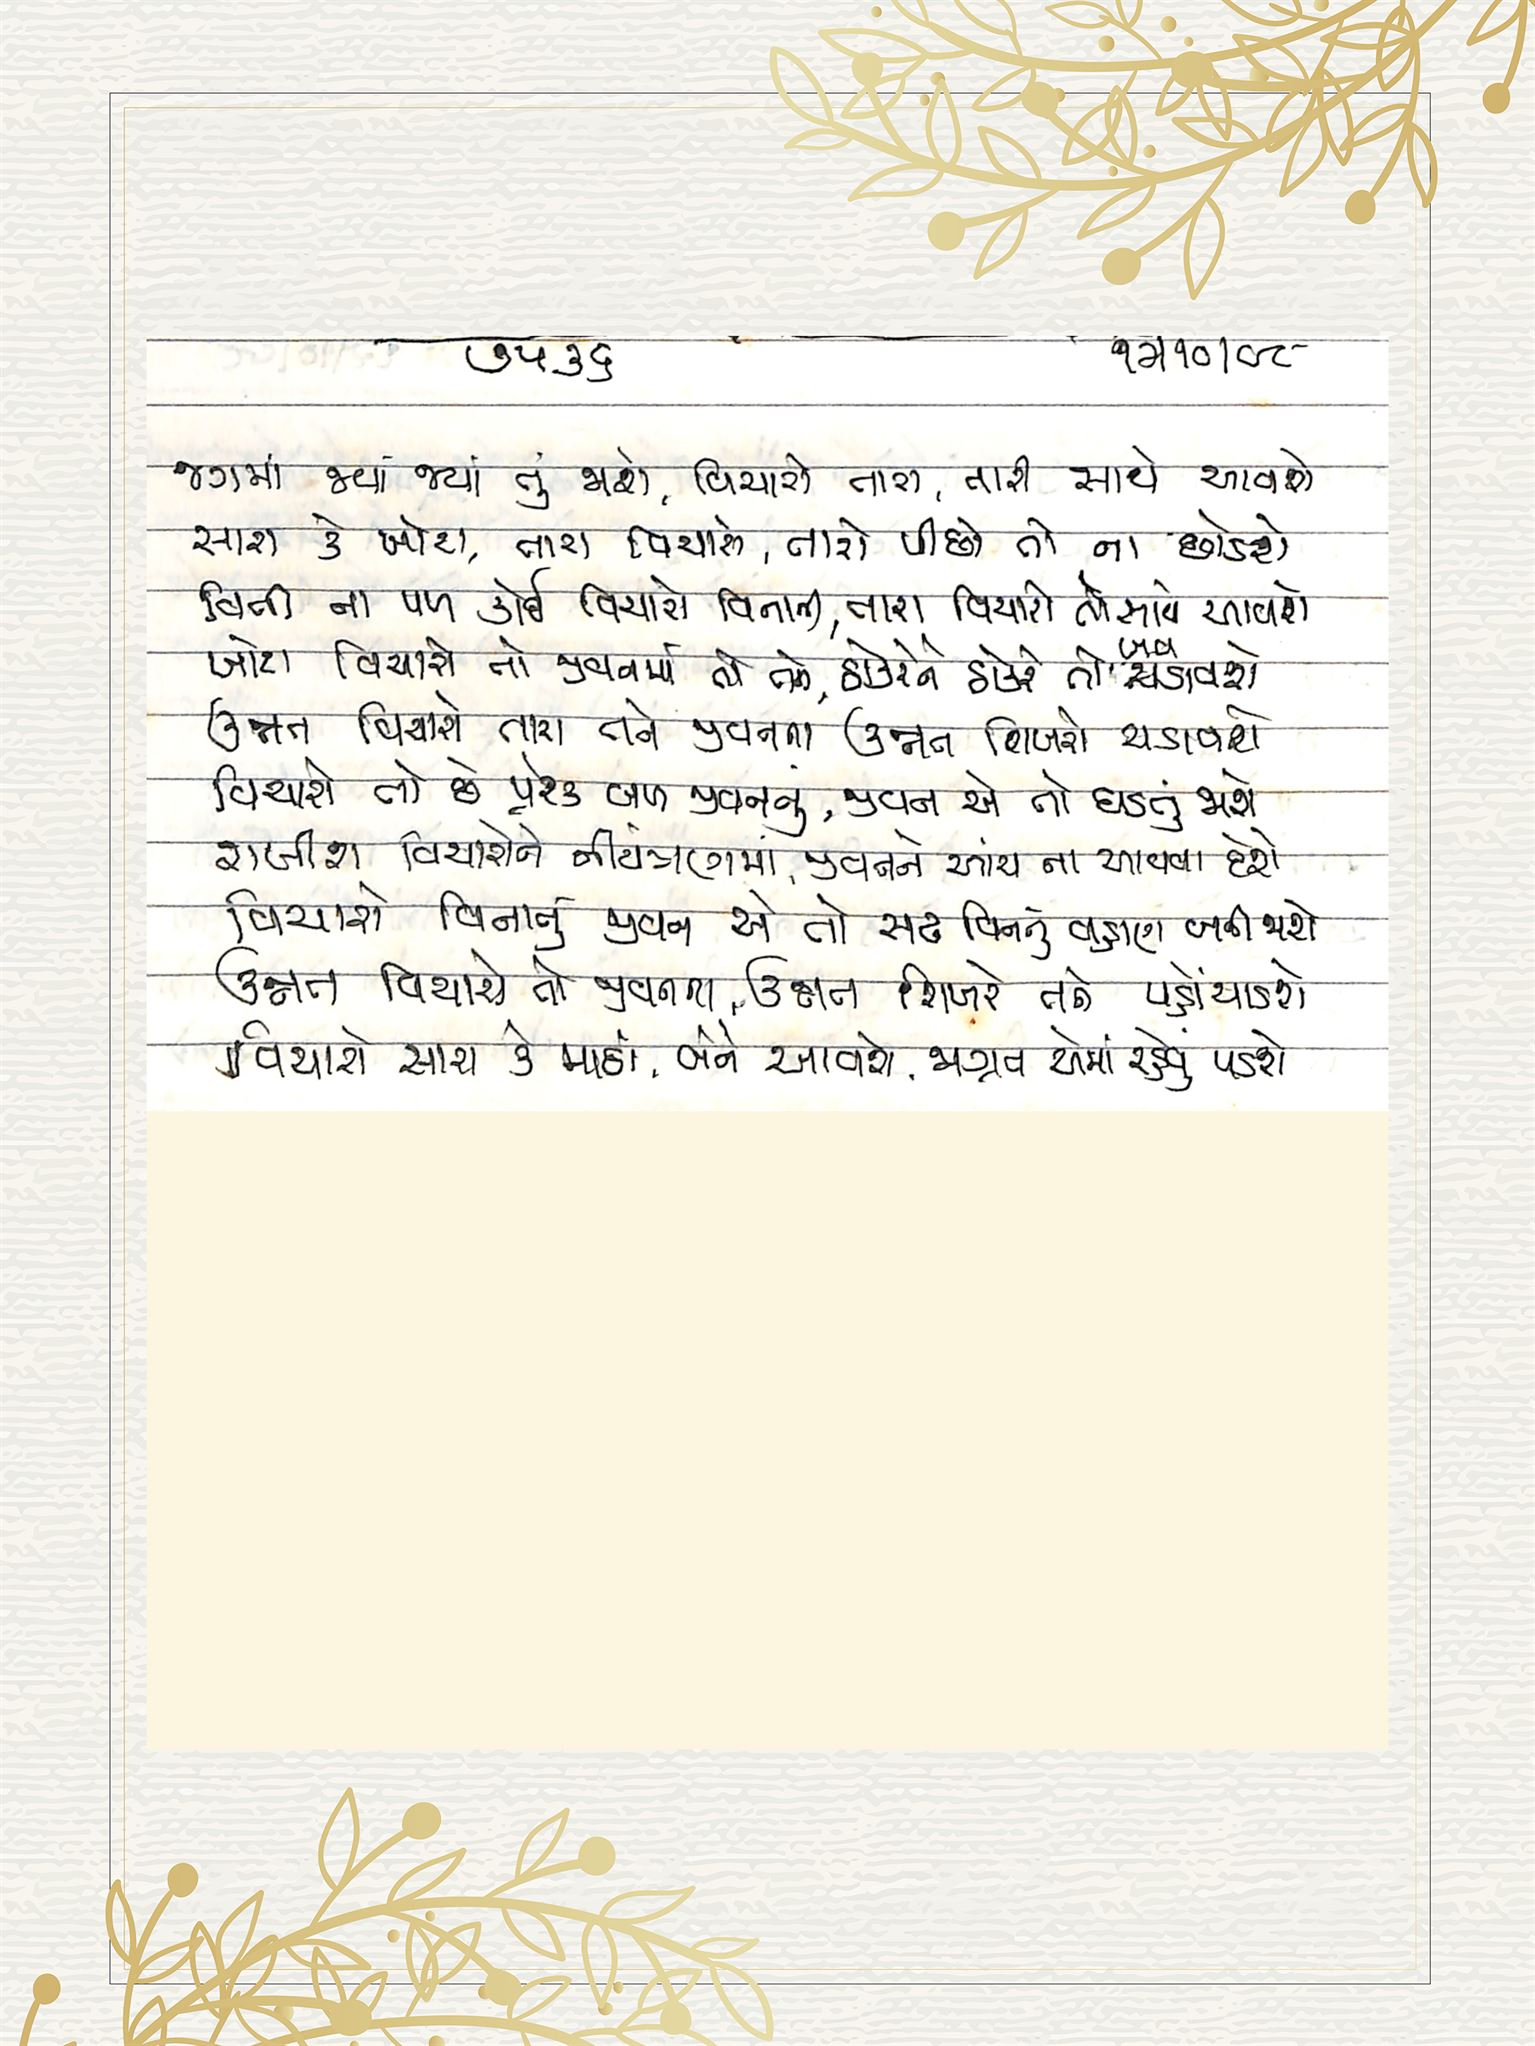 ૭૫૩૬
જગમાં જ્યાં જ્યાં તું જાશે, વિચારો તારા, તારી સાથે આવશે
સારા કે ખોટા, તારા વિચારો, તારો પીછો તો ના છોડશે
વિતી ના પળ કોઈ વિચારો વિનાની, તારા વિચારો તો સાથે આવશે
ખોટા વિચારો તો જીવનમાં તો તને, ઠોકરોને ઠોકરો તો ખવડાવશે
ઉન્નત વિચારો તારા તને જીવનના ઉન્નત શિખરો ચડાવશે
વિચારો તો છે પ્રેરક બળ જીવનનું, જીવન એ તો ઘડતું જાશે
રાખીશ વિચારોને નીયંત્રણમાં, જીવનને આંચ ના આવવા દેશે
વિચારો વિનાનું જીવન એ તો સઢ વિનનું વહાણ બની જાશે
ઉન્નત વિચારો તો જીવનના, ઉન્નત શિખરે તને પહોંચાડશે
વિચારો સારા કે માઠાં, બંને આવશે, જાગ્રત એમાં રહેવું પડશે